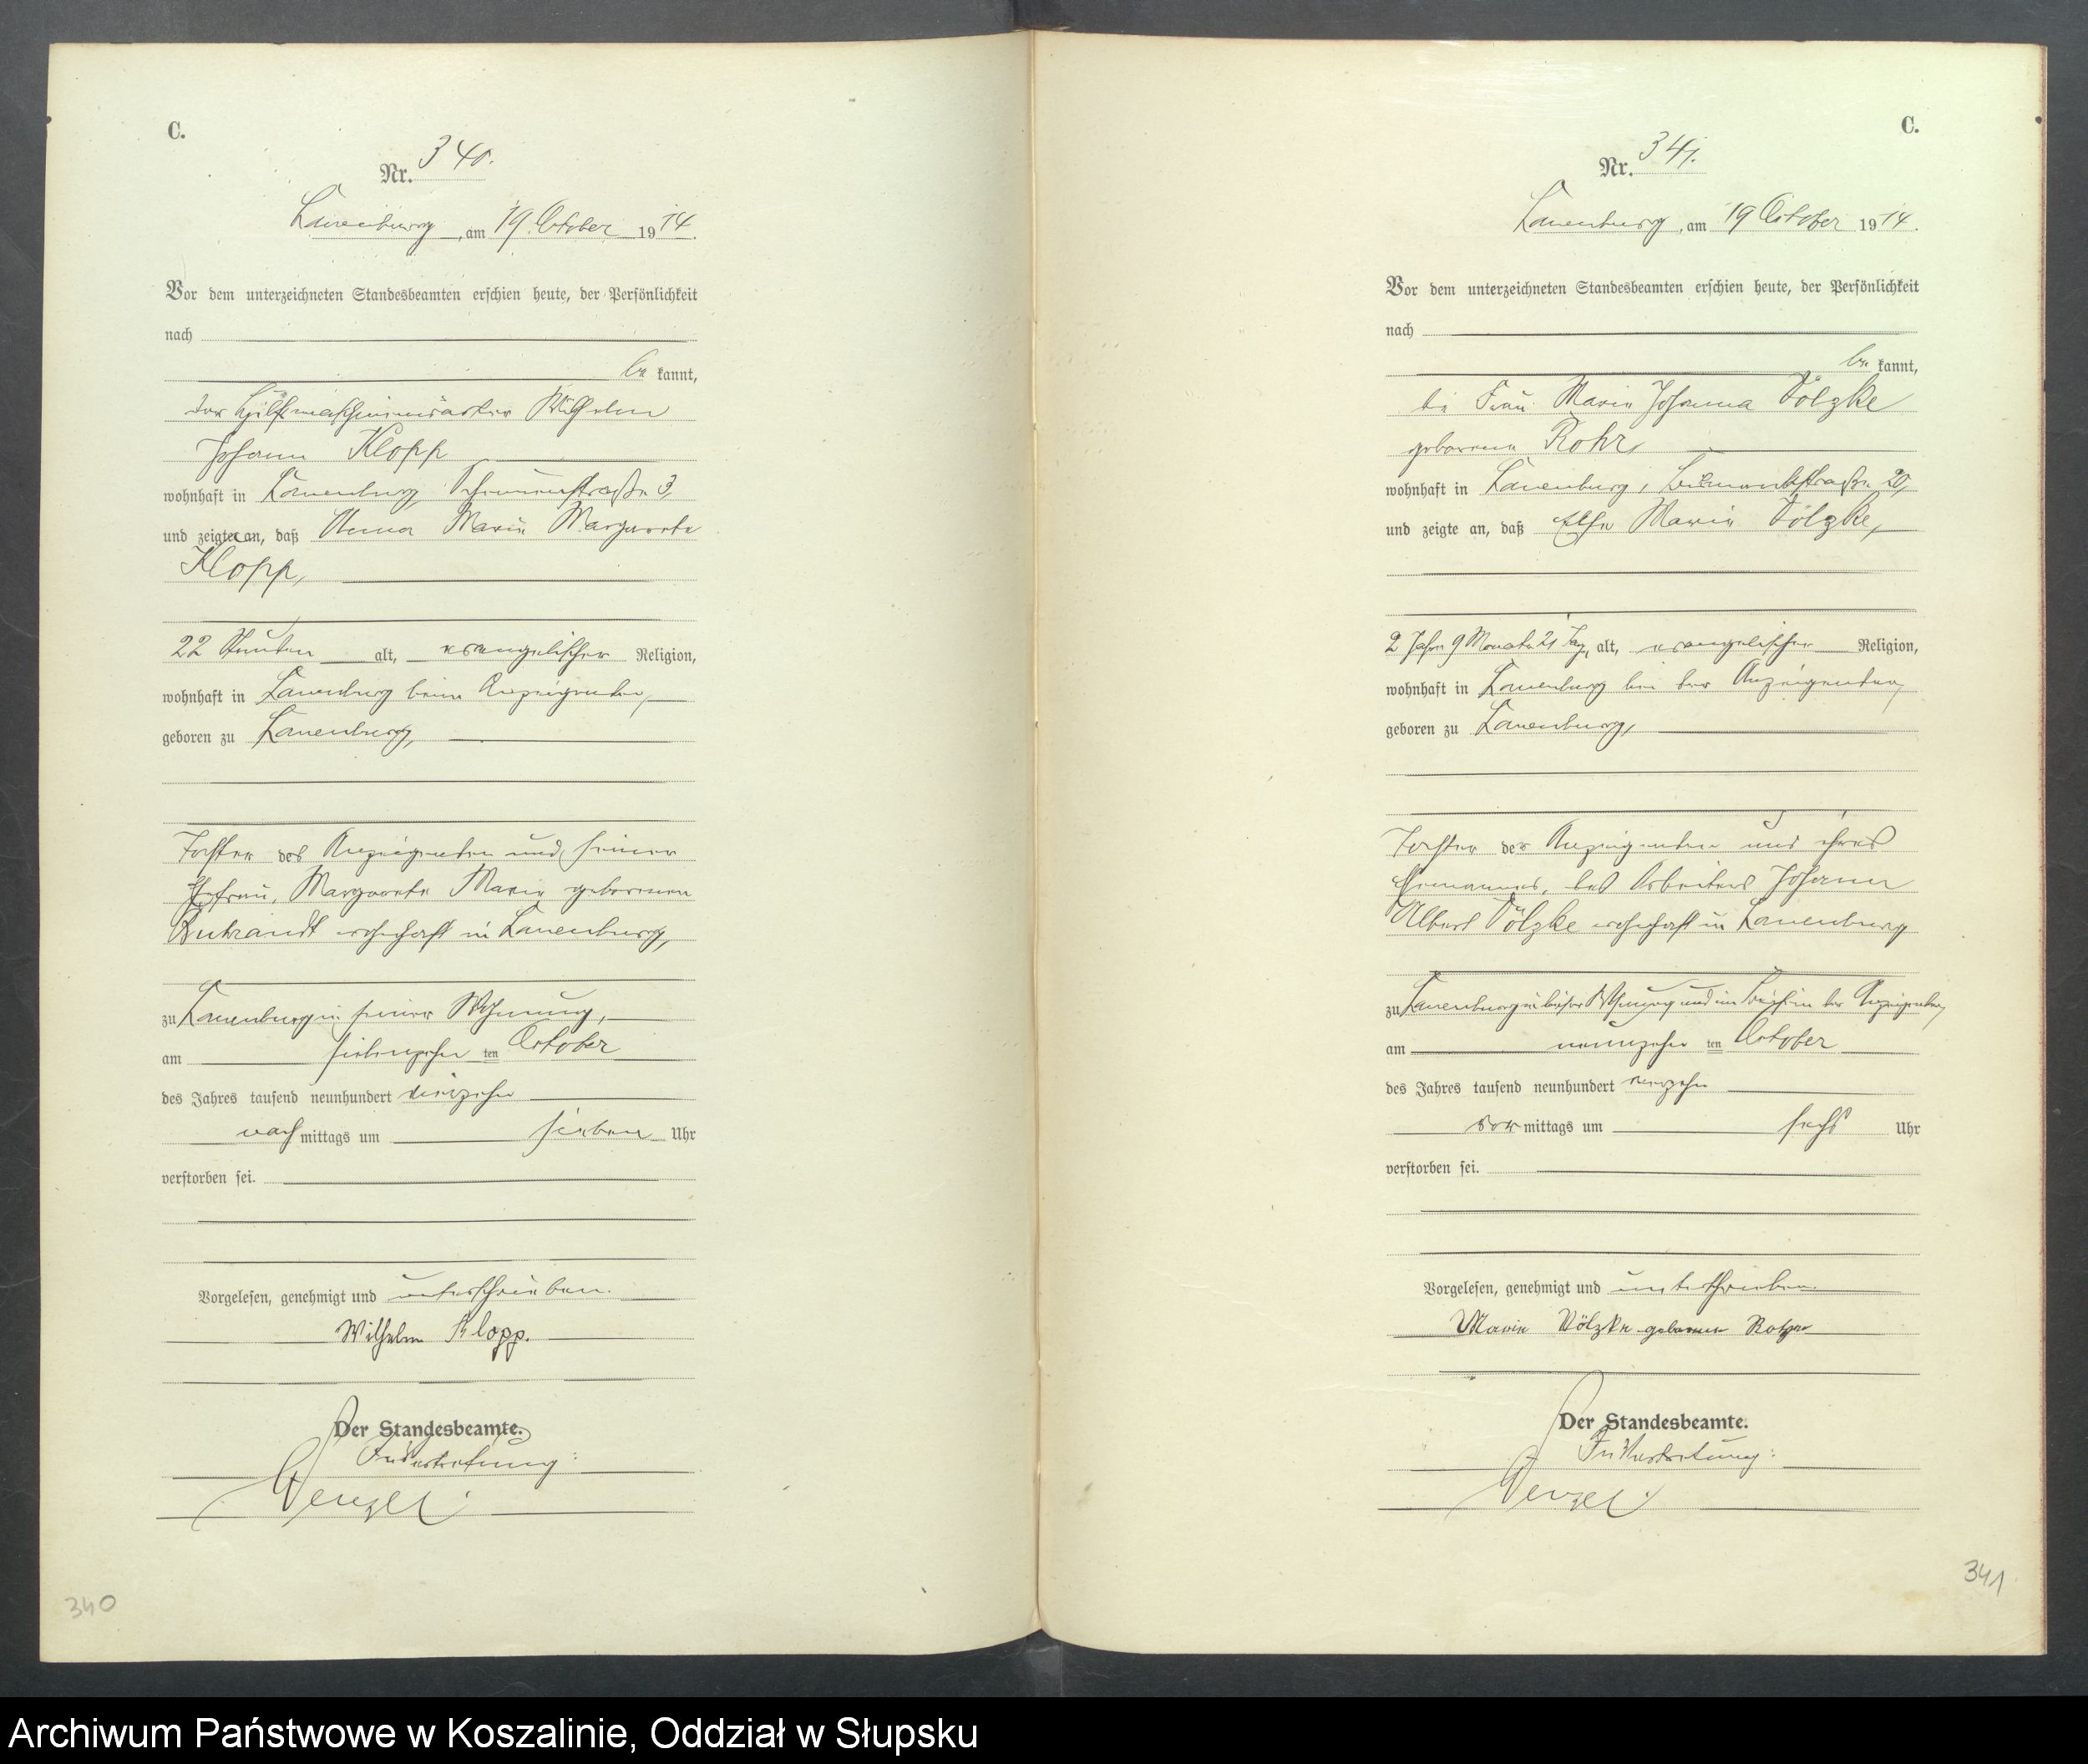 C.
Nr. 340.
Lauenburg, am 19. October 1914.
Vor dem unterzeichneten Standesbeamten erschien heute, der Persönlichkeit
nach
be kannt,
der Hülfsmaschinenwärter Wilhelm
Johann Klopp
wohnhaft in Lauenburg, Scheunenstraße 3,
und zeigte an, daß Anna Marie Margarete
Klopp,
22 Stunden alt, evangelischer Religion,
wohnhaft in Lauenburg beim Anzeigenden,
geboren zu Lauenburg,
Tochter des Anzeigenden und seiner
Ehefrau, Margarete Marie geborenen
wohnhaft in Lauenburg,
zu Lauenburg in seiner Wohnung,
am siebenzehn ten October
des Jahres tausend neunhundert vierzehn
nach mittags um sieben Uhr
verstorben sei.
Vorgelesen, genehmigt und unterschrieben.
Wilhelm Klopp.
Der Standesbeamte.
In Vertretung:
Wenzel.
340
C.
Nr. 341.
Lauenburg, am 19 October 1914.
Vor dem unterzeichneten Standesbeamten erschien heute, der Persönlichkeit
nach
be kannt,
die Frau Marie Johanna Völzke
geborene Rohr,
wohnhaft in Lauenburg, Bismarckstraße 20,
und zeigte an, daß Else Marie Völzke,
2 Jahre 9 Monate 21 Tage alt, evangelischer Religion,
wohnhaft in Lauenburg bei der Anzeigenden,
geboren zu Lauenburg,
Tochter der Anzeigenden und ihres
Ehemannes, des Arbeiters Johann
Albert Völzke wohnhaft in Lauenburg
zu Lauenburg in dieser Wohnung und im Beisein der Anzeigenden,
am neunzehn ten October
des Jahres tausend neunhundert vierzehn
vor mittags um sechs Uhr
verstorben sei.
Vorgelesen, genehmigt und unterschrieben.
Marie Völzke geborene Rohr
Der Standesbeamte.
In Vertretung:
Wenzel.
341
Archiwum Państwowe w Koszalinie, Oddział w Słupsku